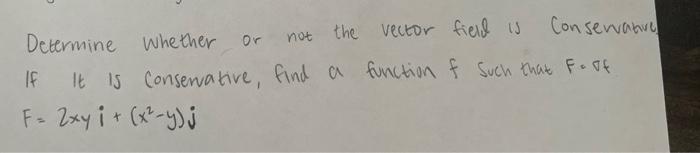 Determine whether or not the vector field is Conservative
If It Is Conservative, find a function f Such that F = ∇f
F = 2xy i + (x²-y) j